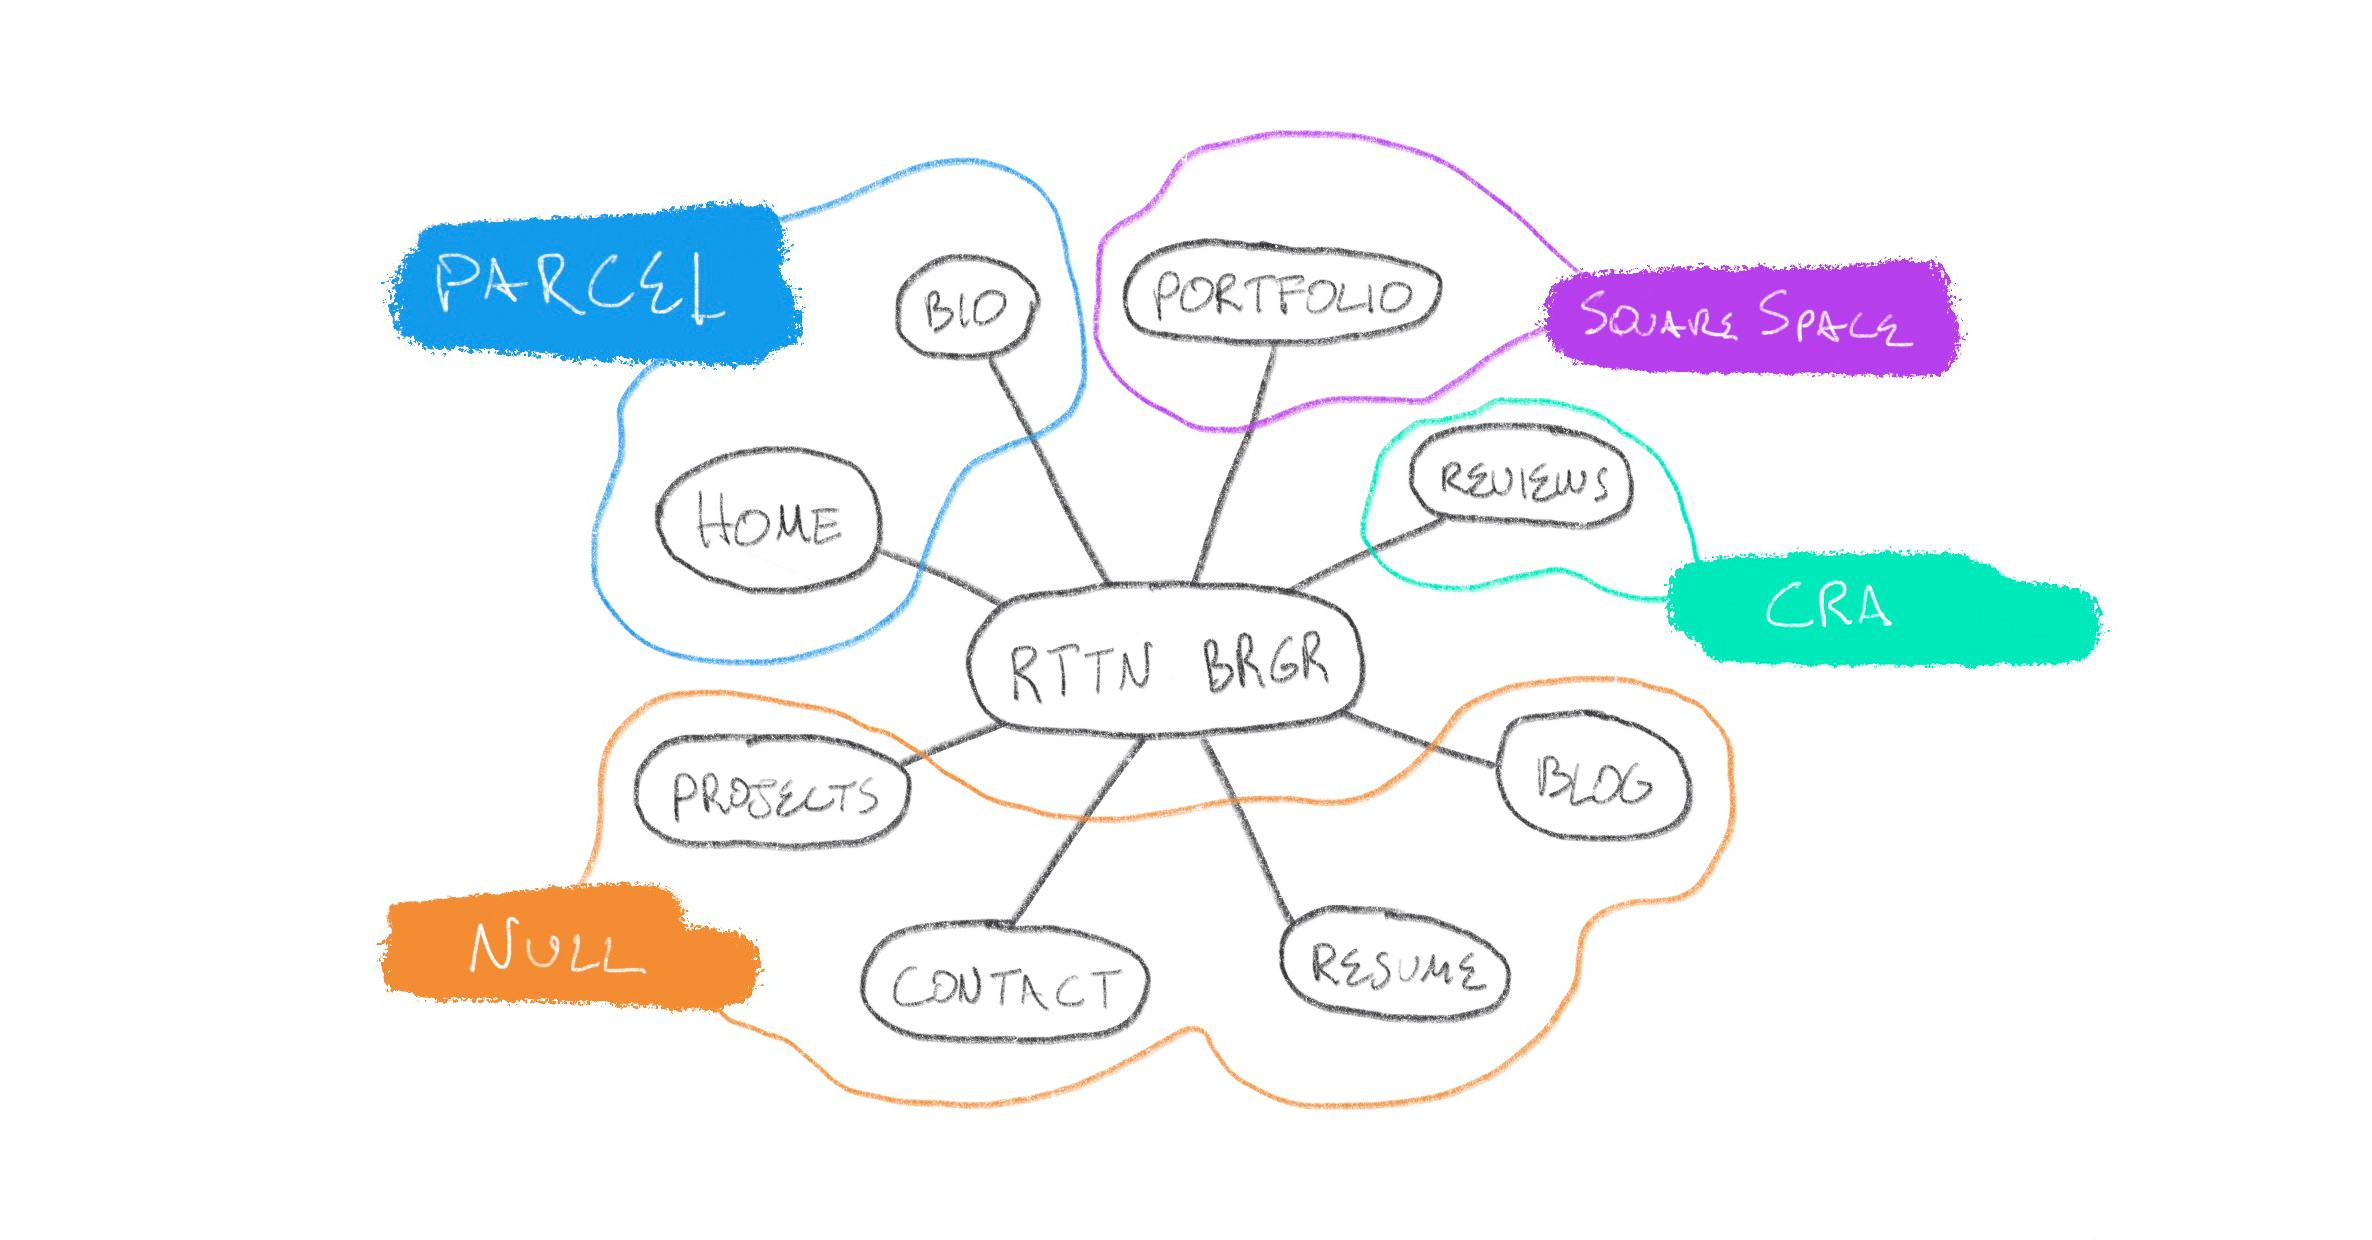 PARCEL
BIO
PORTFOLIO
SQUARE SPACE
HOME
REVIEWS
CRA
RTTN BRGR
PROJECTS
BLOG
NULL
CONTACT
RESUME